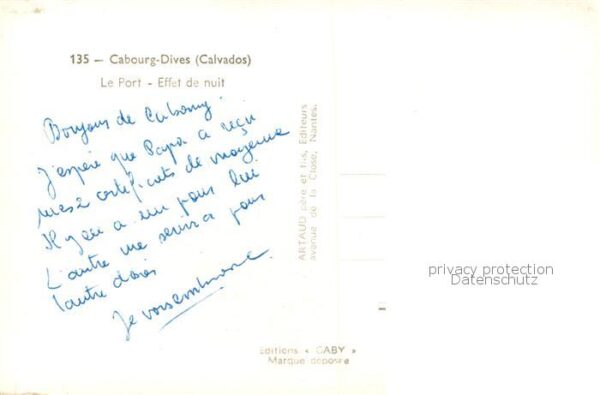 135 — Cabourg-Dives (Calvados)
Le Port - Effet de nuit
Bonjour de Cabourg
J'espère que Papa a reçu
mes 2 certificats de moyenne
Il y en a un pour lui
L'autre me servira pour
l'autre
Je vous embrasse
ARTAUD père et fils, Éditeurs
avenue de la Close, Nantes.
Editions « GABY »
Marque déposée
privacy protection
Datenschutz